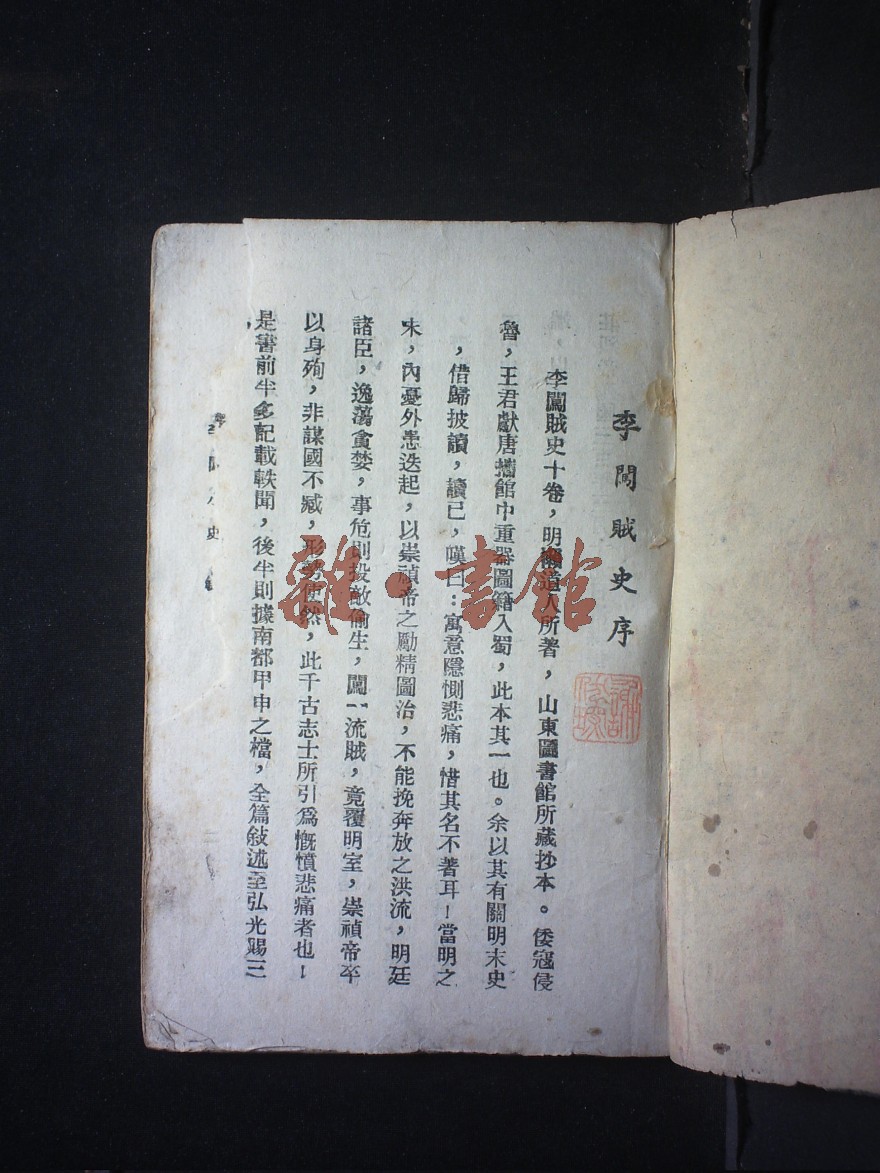 李闖賊史序
李闖賊史十卷，明懶道人所著，山東圖書館所藏抄本。倭寇侵
魯，王君獻唐攜館中重器圖籍入蜀，此本其一也。余以其有關明末史
，借歸披讀，讀已，嘆曰：寓意隱惻悲痛，惜其名不著耳！當明之
末，內憂外患迭起，以崇禎帝之勵精圖治，不能挽奔放之洪流，明廷
諸臣，逸蕩貪婪，事危則投敵偷生，闖一流賊，竟覆明室，崇禎帝卒
以身殉，非謀國不臧，形勢使然，此千古志士所引為慨憤悲痛者也！
是書前半多記載軼聞，後半則據南都甲申之檔，全篇敍述至弘光賜三
史
雜·書館